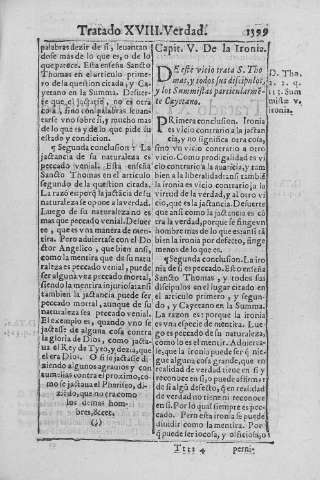 Tratado XVIII. Verdad. 1399
palabras dezir de si, leuantan
dose mas de lo que es, o de lo
que parece. Esta enseña Sancto
Thomas en el articulo prime-
ro de la question citada, y Ca-
yetano en la Summa. Desuer-
te que el jactarse, no es otra
cosa, sino con palabras leuan-
tarse vno sobre si, y mucho mas
de lo que es y de lo que pide su
estado y condicion.
¶ Segunda conclusion. La
jactancia de su naturaleza es
peccado venial. Esta enseña
Sancto Thomas en el articulo
segundo de la question citada.
La razon es porq̃ la jactãcia de su
naturaleza se opone a la verdad.
Luego de su naturaleza no es
mas que peccado venial. Desuer
te, que es vna manera de men-
tira. Pero aduiertase con el Do
ctor Angelico, que bien ansi,
como la mentira que de su natu
raleza es peccado venial, puede
ser alguna vez peccado mortal,
siendo la mentira injuriosa: ansi
tambien la jactancia puede ser
peccado mortal, aunque de su
naturaleza sea peccado venial.
El exemplo es, quando vno se
jactasse de alguna cosa contra
la gloria de Dios, como jacta-
ua el Rey de Tyro, y dezia, que
el era Dios. O si se jactasse di-
ziendo algunos agrauios y con
tumelias contra el proximo, co-
mo se jactaua el Phariseo, di-
ziendo, que no era como
los demas hom-
bres, &cet.
(?)
Capit. V. De la Ironia.
DE este vicio trata S. Tho
mas, y todos sus discipulos,
y los Summistas particularmẽ-
te Cayetano.
D. Tho.
2. 2. q.
113. Sum
mistæ v.
ironia.
PRimera conclusion. Ironia
es vicio contrario a la jactan
cia, y no significa otra cosa,
sino vn vicio contrario a otro
vicio. Como prodigalidad es vi
cio contrario a la auaricia, y tam
bien a la liberalidad: ansi tambiẽ
la ironia es vicio contrario, a la
virtud de la verdad, y al otro vi
cio, que es la jactancia. Desuerte
que ansi como la jactancia es cõ
tra la verdad, porque se finge vn
hombre mas de lo que es: ansi tã
bien la ironia por defecto, finge
menos de lo que es.
¶ Segunda conclusion. La iro
nia de si es peccado. Esta enseña
Sancto Thomas, y todos sus
discipulos en el lugar citado en
el articulo primero, y segun-
do, y Cayetano en la Summa.
La razon es: porque la ironia
es vna especie de mentira. Lue-
go es peccado de su naturaleza,
como lo es el mentir. Aduierta-
se, que la ironia puede ser q̃ nie
gue alguna cosa grande, que en
realidad de verdad tiene en si y
reconoce en si, o puede afirmar
de si algũ defecto, q̃ en realidad
de verdad no tiene ni reconoce
en si. Por lo qual siempre es pec-
cado. Pero esta ironia se puede
diuidir como la mentira. Por
q̃ puede ser iocosa, y officiosa, o
Tttt 4 perni-